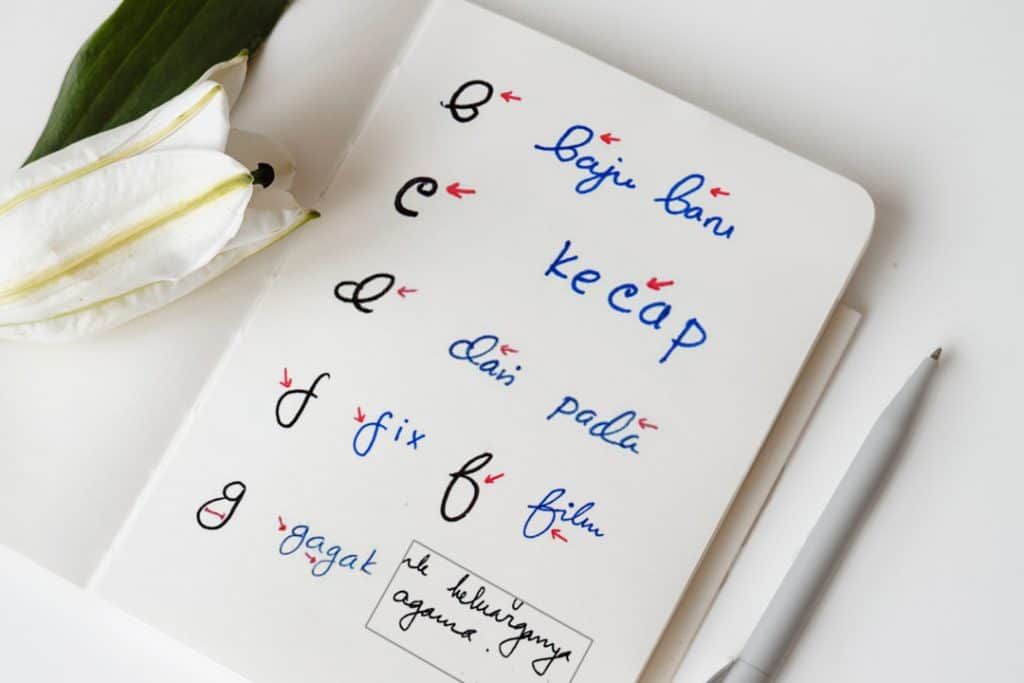 b
baju baru
c
kecap
d
dari
pada
f
fix
f
film
g
gagak
keluarganya
agama.